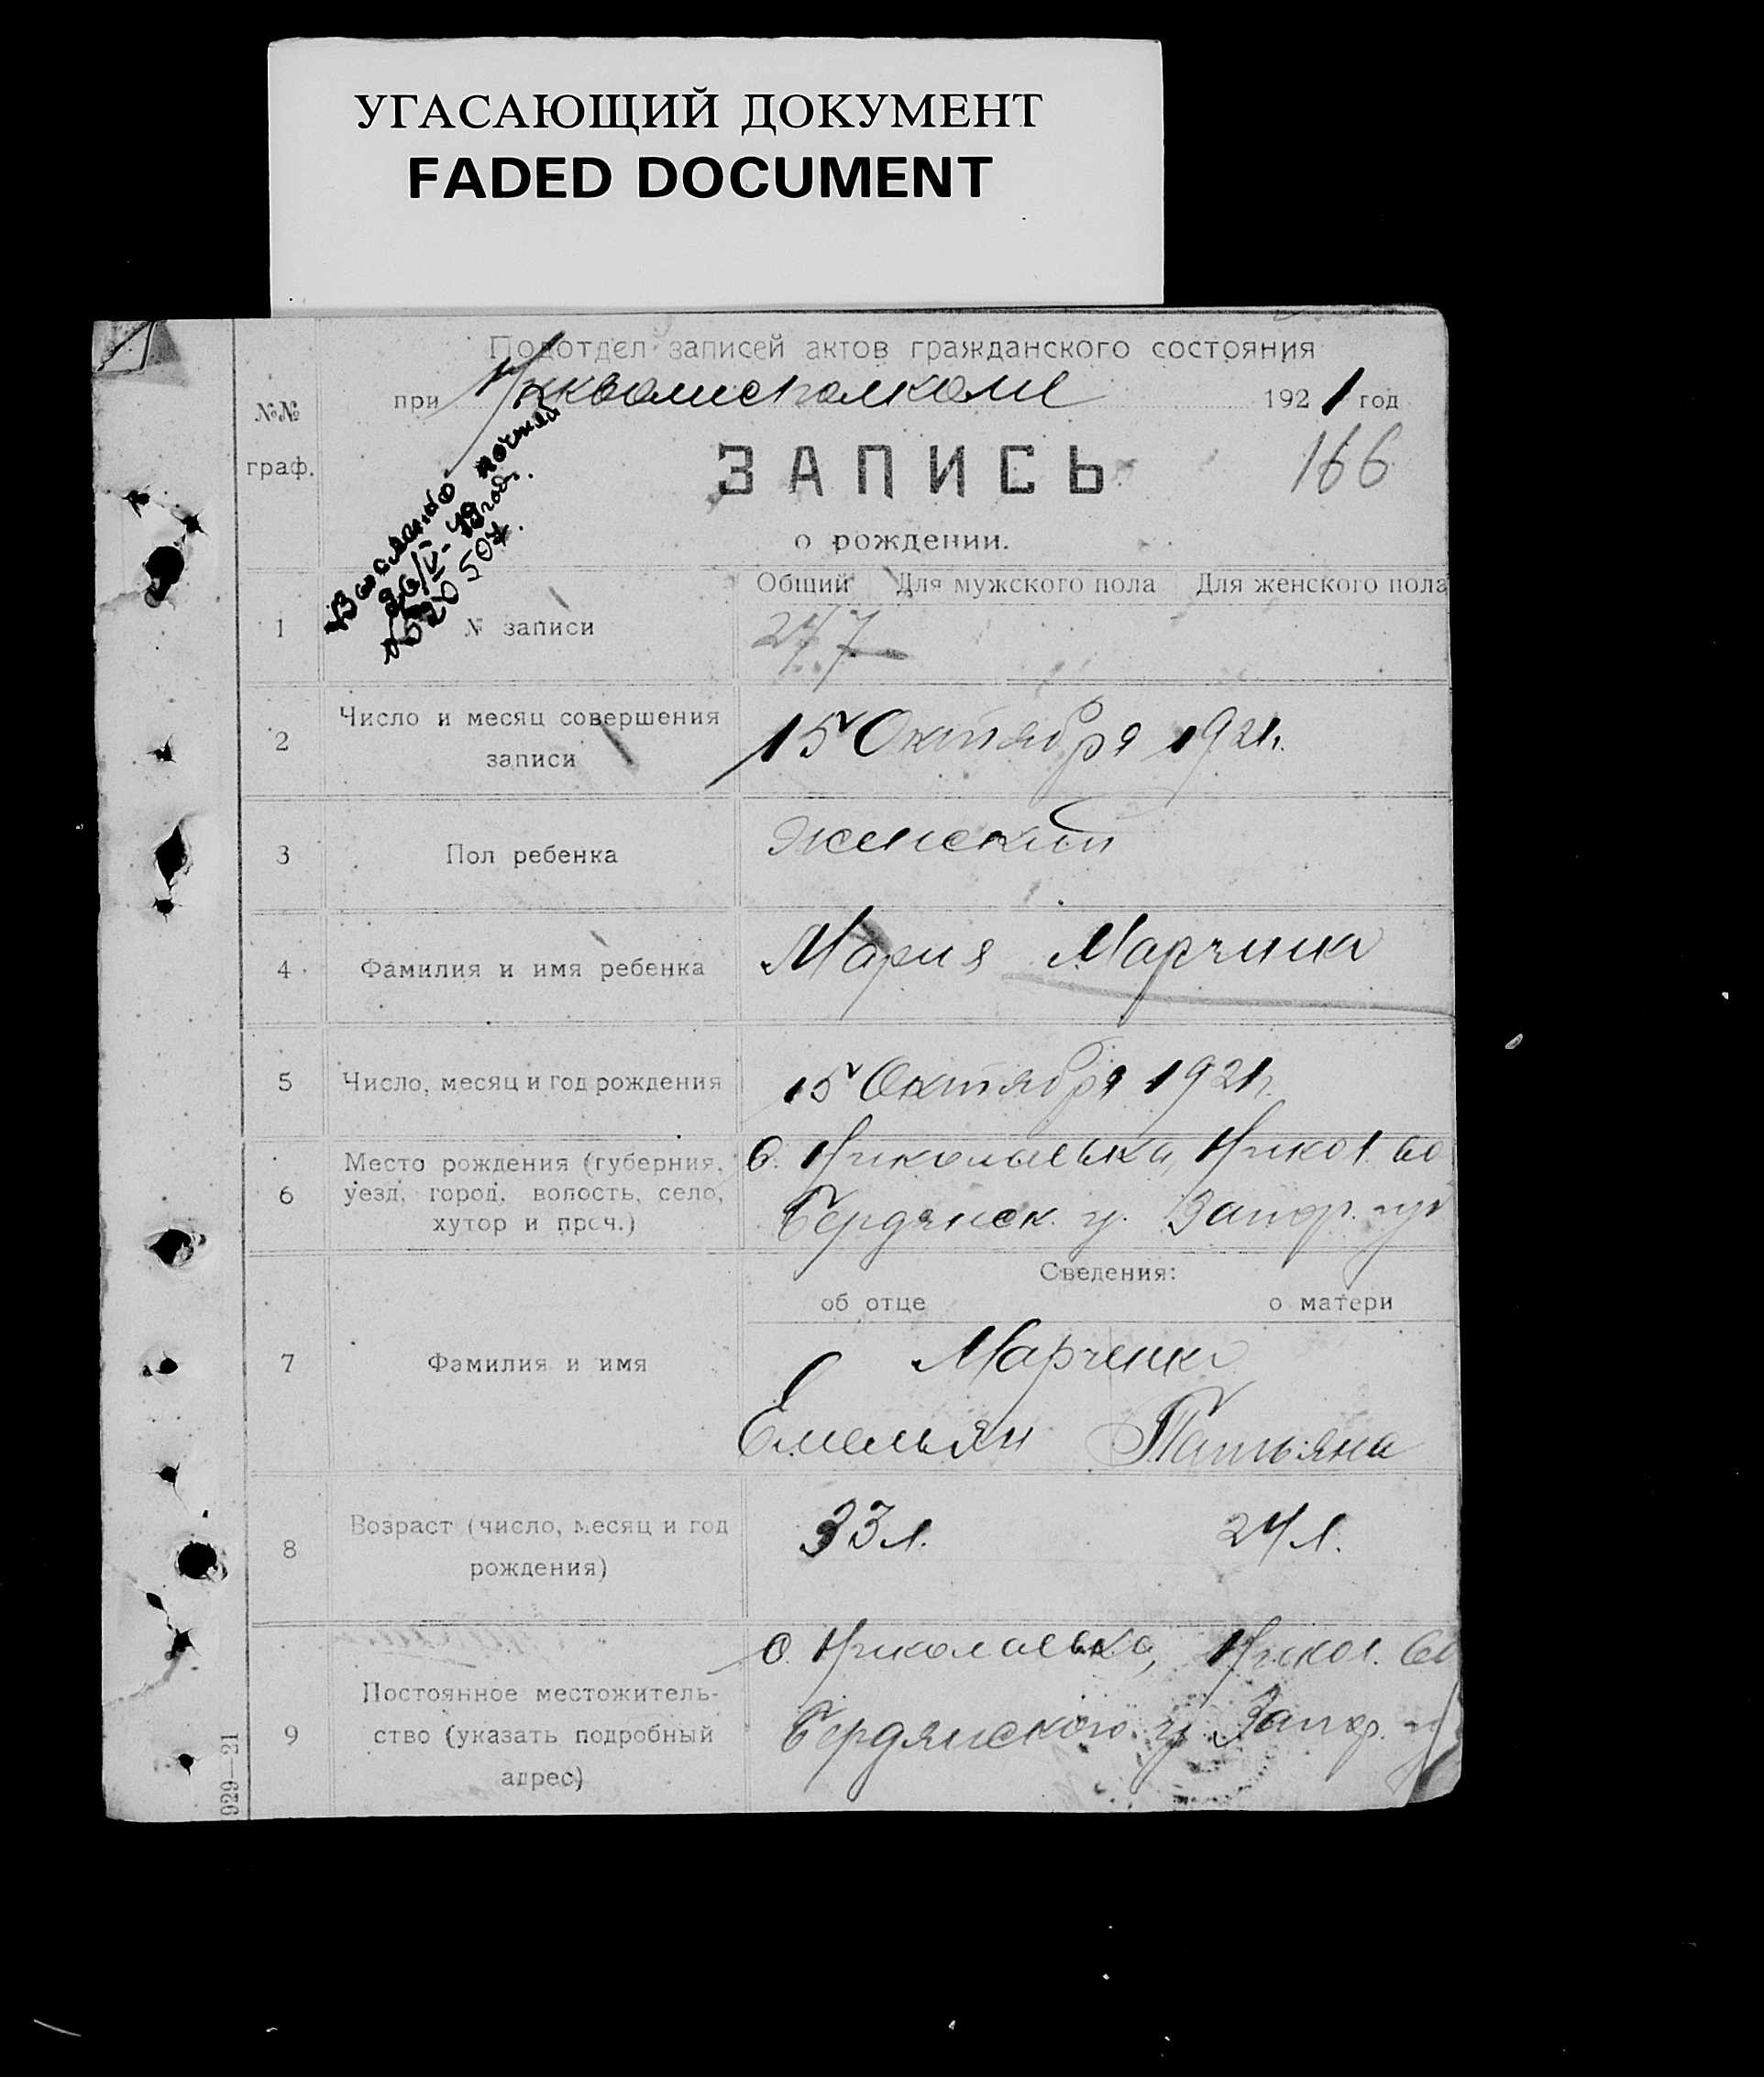 УГАСАЮЩИЙ ДОКУМЕНТ
FADED DOCUMENT
Подотдел записей актов гражданского состояния
при 1921 год
№№
граф.
ЗАПИСЬ
166
о рождении.
Выслано повтор
26/V-49 год.
20507.
Общий Для мужского пола Для женского пола
1 № записи 247
2 Число и месяц совершения
записи
15 Октября 1921г.
3 Пол ребенка Женский
4 Фамилия и имя ребенка Мария Марченко
5 Число, месяц и год рождения 15 Октября 1921г.
6 Место рождения (губерния,
уезд, город, волость, село,
хутор и проч.)
с. Николаевка, Никол. во
Бердянск. у. Запор. гу
Сведения:
об отце о матери
7 Фамилия и имя
Марченко
Емельян Татьяна
8 Возраст (число, месяц и год
рождения)
33 л. 24 л.
9 Постоянное местожитель-
ство (указать подробный
адрес)
с. Николаевка, Никол. во
Бердянского у. Запор. г
929—21